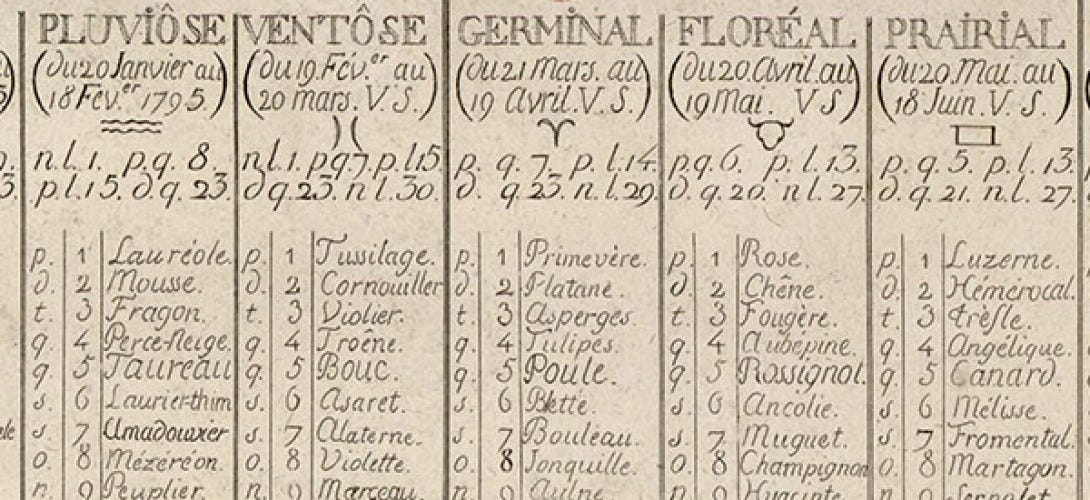 PLUVIÔSE
(du 20 Janvier au
18 Fév.er 1795.)
n.l. 1. p.q. 8.
p.l. 15. d.q. 23.
p. 1 Lauréole.
d. 2 Mousse.
t. 3 Fragon.
q. 4 Perce-Neige.
q. 5 Taureau
s. 6 Laurier-thim
s. 7 Amadouvier
o. 8 Mézéréon.
n. 9 Peuplier.
VENTÔSE
(du 19 Fév.er au
20 mars. V.S.)
n.l. 1. p.q. 7. p.l. 15.
d.q. 23. n.l. 30.
p. 1 Tussilage.
d. 2 Cornouiller
t. 3 Violier.
q. 4 Troêne.
q. 5 Bouc.
s. 6 Asaret.
s. 7 Alaterne.
o. 8 Violette.
n. 9 Marceau.
GERMINAL
(du 21 Mars. au
19 Avril. V.S.)
p. q. 7. p. l. 14.
d. q. 23. n.l. 29.
p. 1 Primevère.
d. 2 Platane.
t. 3 Asperges.
q. 4 Tulipes.
q. 5 Poule.
s. 6 Blette.
s. 7 Bouleau.
o. 8 Jonquille.
n. 9 Aulne.
FLORÉAL
(du 20. Avril. au
19 Mai. V S)
p.q. 6. p.l. 13.
d.q. 20. n.l. 27.
p. 1 Rose.
d. 2 Chêne.
t. 3 Fougère.
q. 4 Aubépine.
q. 5 Rossignol.
s. 6 Ancolie.
s. 7 Muguet.
o. 8 Champignon
n. 9 Hyacinte.
PRAIRIAL
(du 20. Mai. au
18 Juin. V. S.)
p. q. 5. p. l. 13.
d. q. 21. n.l. 27.
p. 1 Luzerne.
d. 2 Hémérocal.
t. 3 trèfle.
q. 4 Angélique.
q. 5 Canard.
s. 6 Mélisse.
s. 7 Fromental.
o. 8 Martagon.
n. 9 Serpolet